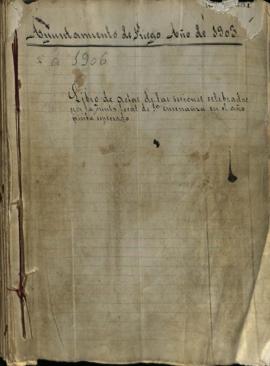 Ayuntamiento de Priego Año de 1903
a 1906
Libro de actas de las sesiones celebradas
por la Junta local de 1ª enseñanza en el año
arriba expresado